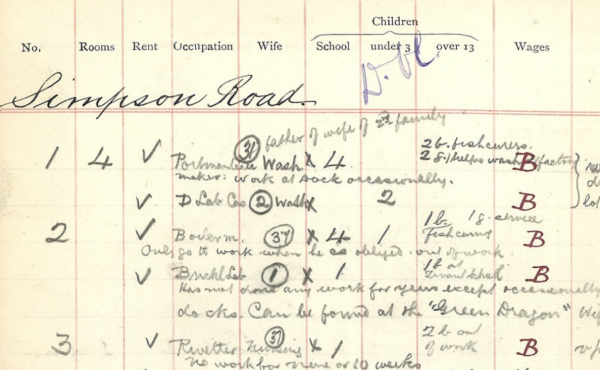 Children
No. Rooms Rent Occupation Wife School under 3 over 13 Wages
D. bl
Simpson Road.
father of wife of 2nd family
1 4 ✓ Portmanteau 31 Wash x 4 2 b. fishcurers. B
2 g. 1 helps wash 1 factory
maker: work at dock occasionally.
✓ D Lab Cas 2 Wash x 2 B
1 b. 1 g. service
2 ✓ Boilerm. 37 x 4 1 Fishcurers B
Only go to work when he is obliged. out of work
✓ Brickl Lab 1 x 1 1 b at B
Has not done any work for years except occasionally
docks. Can be found at the "Green Dragon"
3 ✓ Rivetter 37 Nursing x 1 2 b out B
of work
No work for nine or 10 weeks